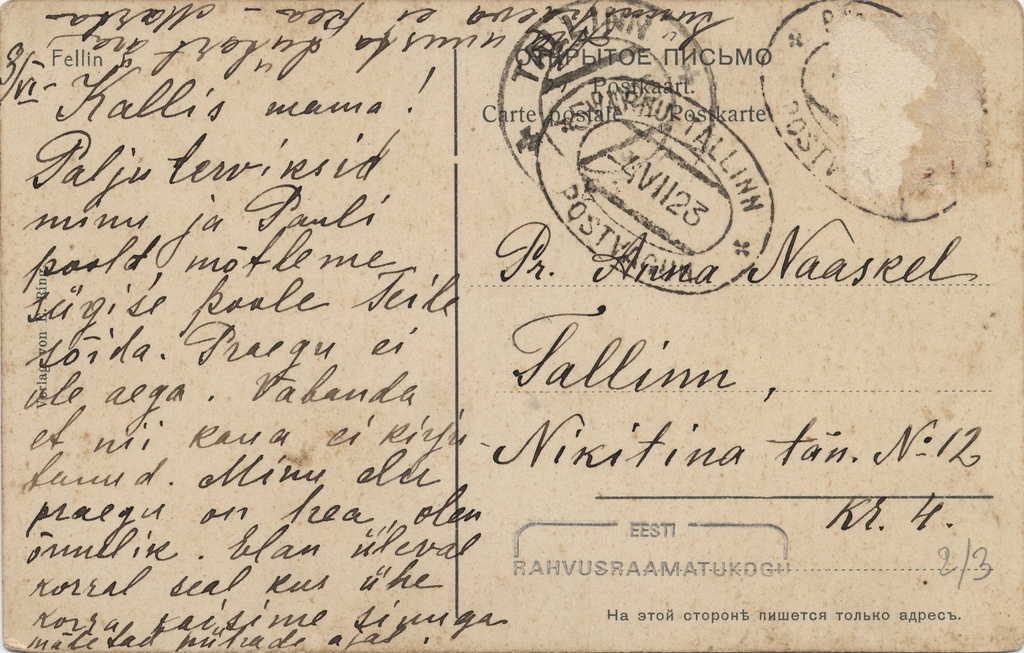 3/VI
Fellin
Kallis mama!
Palju terviksid
minu ja Pauli
poolt, mõtleme
sügise poole Teile
sõida. Praegu ei
ole aega. Vabanda
et nii kaua ei kirju-
tanud. Minu elu
praegu on hea, olen
õnnelik. Elan üleval
korral seal kus ühe
korra käisime sinuga
mäletad pühade ajal.
Marta
Verlag von E. Ring
ОТКРЫТОЕ ПИСЬМО
Postkaart.
Carte postale Postkarte
TALLINN
PÄRNU-TALLINN
4 VII 23
POSTVAGUN
POSTV
Pr. Anna Naaskel
Tallinn,
Nikitina tän. No 12
Kr. 4.
EESTI
RAHVUSRAAMATUKOGU
2/3
На этой сторонѣ пишется только адресъ.